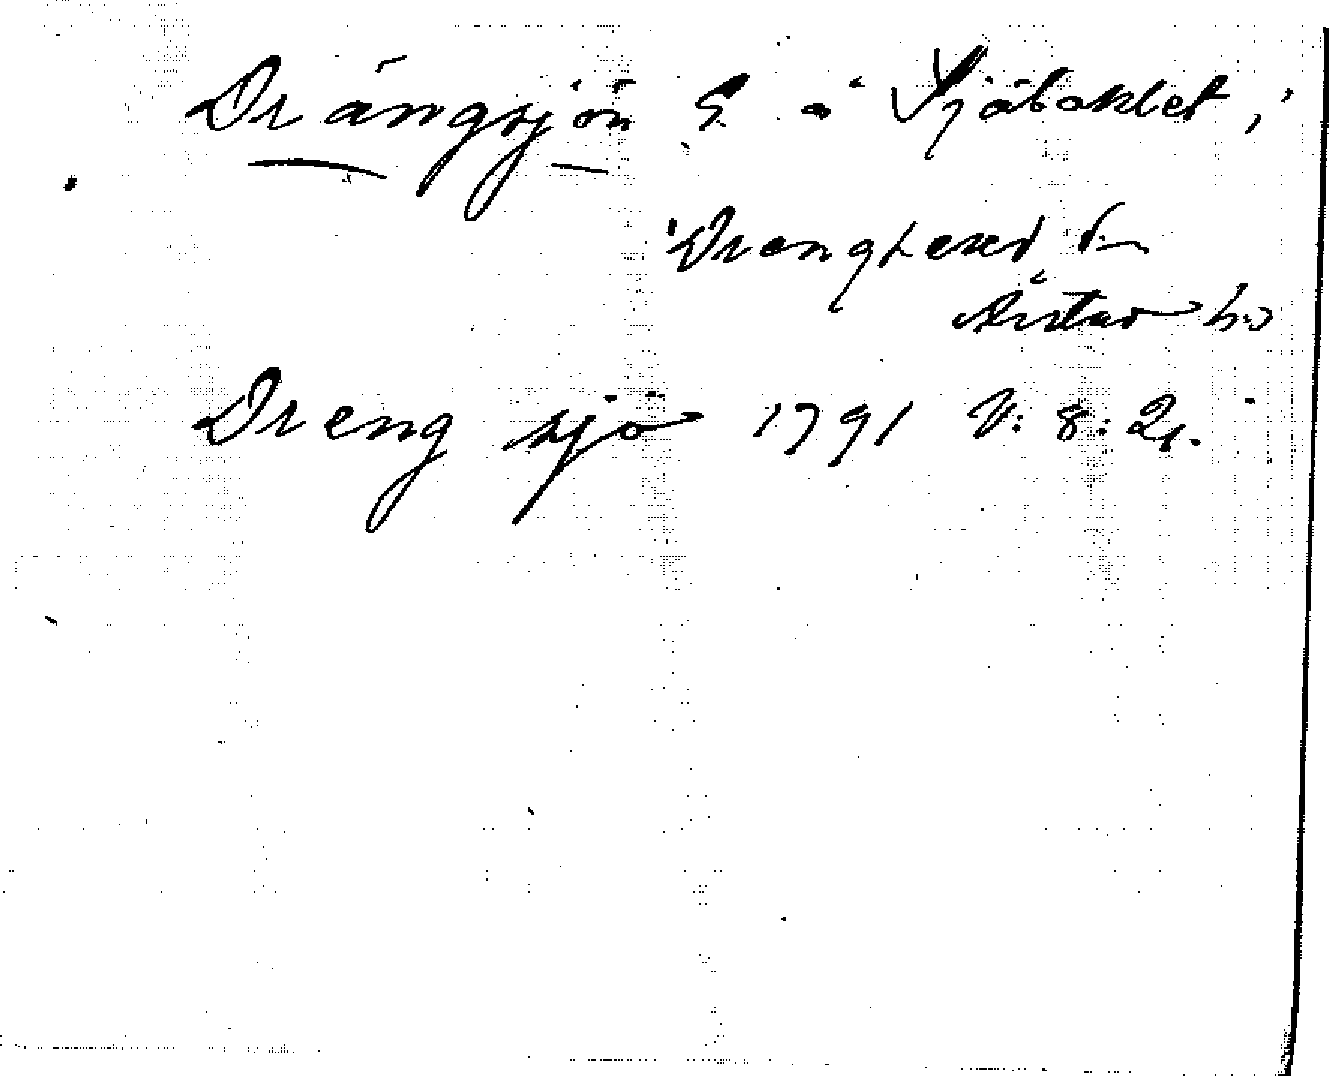 Drängsjön S. å Sjöboklet, i
Drängsered sn
Årstad hd
Dreng sjö 1791 V: 8: 21.